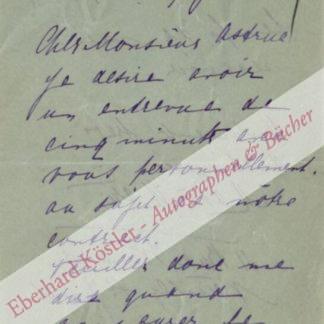 Cher Monsieur Astruc
Je desire avoir
un entrevue de
cinq minuts avec
vous personnellement.
au sujet de nôtre
contract.
Veuillez donc me
dire quand
vous aurez le
Eberhard Köstler - Autographen & Bücher